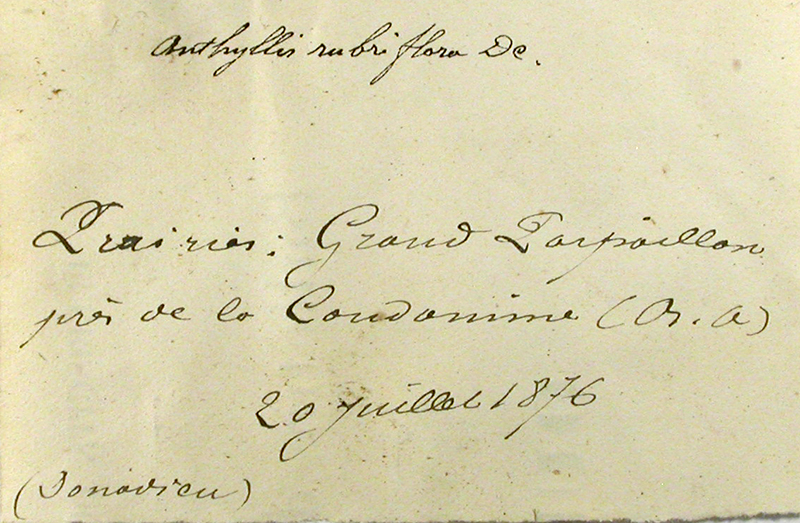 Anthyllis rubriflora DC.
Prairies: Grand Parpaillon
près de la Condamine (B. A)
20 juillet 1876
(Donadieu)